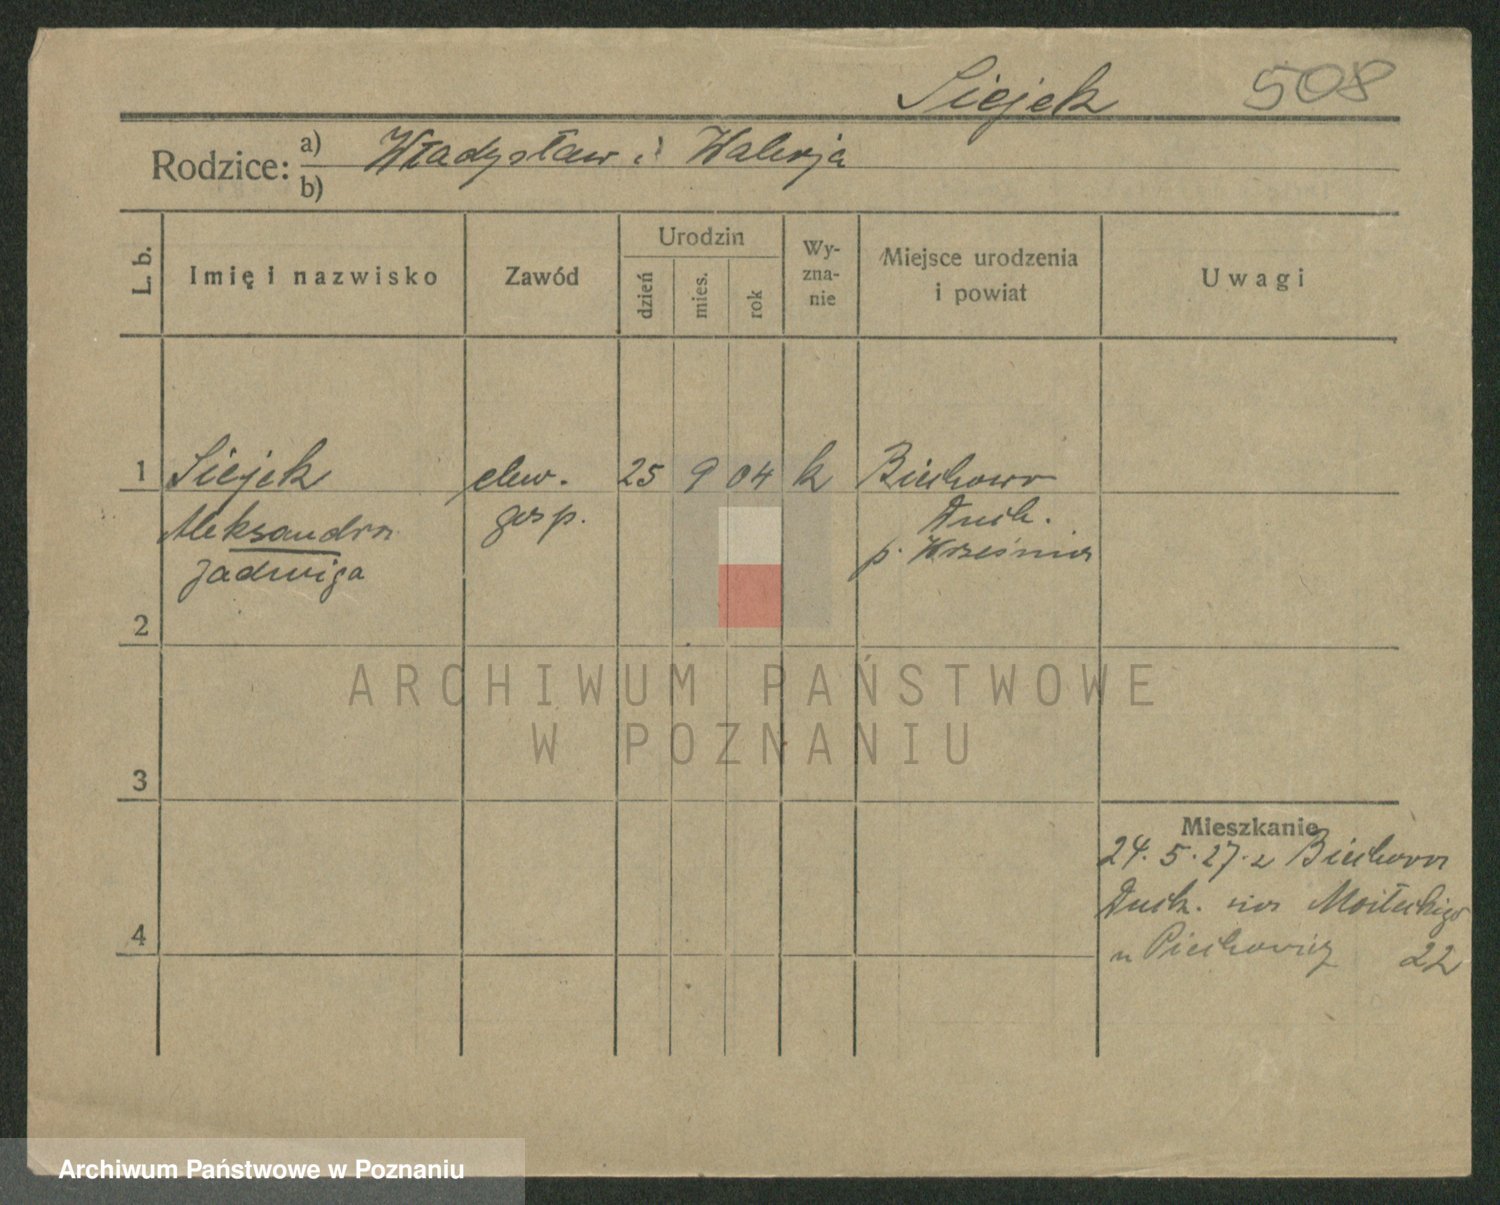 Siejek 508
Rodzice: a) Władysław i Walerja
b)
L. b. Imię i nazwisko Zawód Urodzin dzień mies. rok Wy-zna-nie Miejsce urodzenia i powiat Uwagi
1 Siejek elew. 25 9 04 k Biechowo
Aleksandra gosp. Duch.
Jadwiga p. Września
2
ARCHIWUM PAŃSTWOWE
W POZNANIU
3
Mieszkanie
24.5.27. z Biechowa
Duch. na
4
u Piechowicz 22
Archiwum Państwowe w Poznaniu